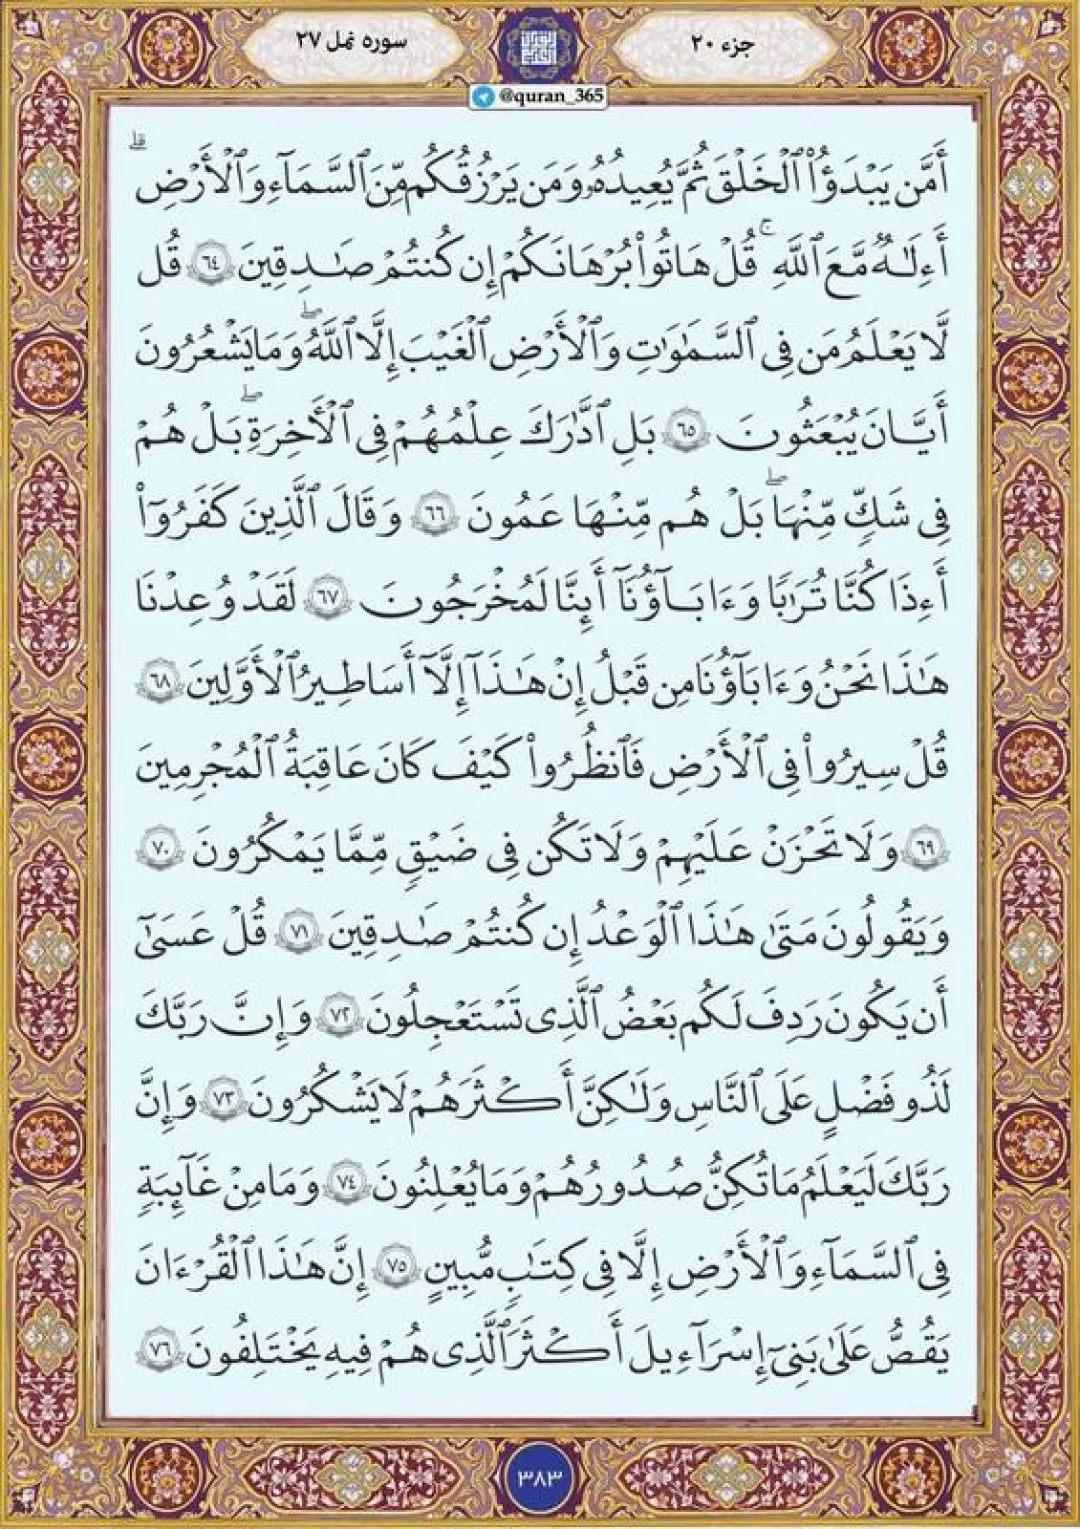 جزء ۲۰
سوره نمل ۲۷
@quran_365
أَمَّن يَبْدَؤُا۟ ٱلْخَلْقَ ثُمَّ يُعِيدُهُۥ وَمَن يَرْزُقُكُم مِّنَ ٱلسَّمَآءِ وَٱلْأَرْضِ ۗ
أَءِلَـٰهٌ مَّعَ ٱللَّهِ ۚ قُلْ هَاتُوا۟ بُرْهَانَكُمْ إِن كُنتُمْ صَـٰدِقِينَ ۶۴ قُل
لَّا يَعْلَمُ مَن فِى ٱلسَّمَـٰوَٰتِ وَٱلْأَرْضِ ٱلْغَيْبَ إِلَّا ٱللَّهُ ۖ وَمَا يَشْعُرُونَ
أَيَّانَ يُبْعَثُونَ ۶۵ بَلِ ٱدَّٰرَكَ عِلْمُهُمْ فِى ٱلْـَٔاخِرَةِ ۖ بَلْ هُمْ
فِى شَكٍّ مِّنْهَا ۖ بَلْ هُم مِّنْهَا عَمُونَ ۶۶ وَقَالَ ٱلَّذِينَ كَفَرُوٓا۟
أَءِذَا كُنَّا تُرَٰبًا وَءَابَآؤُنَآ أَئِنَّا لَمُخْرَجُونَ ۶۷ لَقَدْ وُعِدْنَا
هَـٰذَا نَحْنُ وَءَابَآؤُنَا مِن قَبْلُ إِنْ هَـٰذَآ إِلَّآ أَسَـٰطِيرُ ٱلْأَوَّلِينَ ۶۸
قُلْ سِيرُوا۟ فِى ٱلْأَرْضِ فَٱنظُرُوا۟ كَيْفَ كَانَ عَـٰقِبَةُ ٱلْمُجْرِمِينَ
۶۹ وَلَا تَحْزَنْ عَلَيْهِمْ وَلَا تَكُن فِى ضَيْقٍ مِّمَّا يَمْكُرُونَ ۷۰
وَيَقُولُونَ مَتَىٰ هَـٰذَا ٱلْوَعْدُ إِن كُنتُمْ صَـٰدِقِينَ ۷۱ قُلْ عَسَىٰٓ
أَن يَكُونَ رَدِفَ لَكُم بَعْضُ ٱلَّذِى تَسْتَعْجِلُونَ ۷۲ وَإِنَّ رَبَّكَ
لَذُو فَضْلٍ عَلَى ٱلنَّاسِ وَلَـٰكِنَّ أَكْثَرَهُمْ لَا يَشْكُرُونَ ۷۳ وَإِنَّ
رَبَّكَ لَيَعْلَمُ مَا تُكِنُّ صُدُورُهُمْ وَمَا يُعْلِنُونَ ۷۴ وَمَا مِنْ غَآئِبَةٍ
فِى ٱلسَّمَآءِ وَٱلْأَرْضِ إِلَّا فِى كِتَـٰبٍ مُّبِينٍ ۷۵ إِنَّ هَـٰذَا ٱلْقُرْءَانَ
يَقُصُّ عَلَىٰ بَنِىٓ إِسْرَٰٓءِيلَ أَكْثَرَ ٱلَّذِى هُمْ فِيهِ يَخْتَلِفُونَ ۷۶
۳۸۳